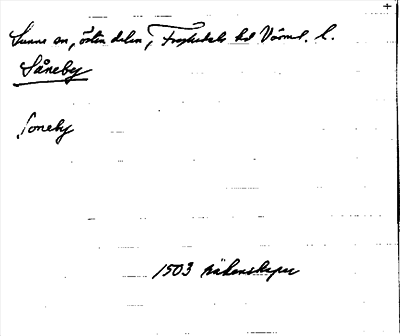 Sunne sn, östra delen, Fryksdals hd Värml. l.
Såneby
Soneby
1503 räkenskaper